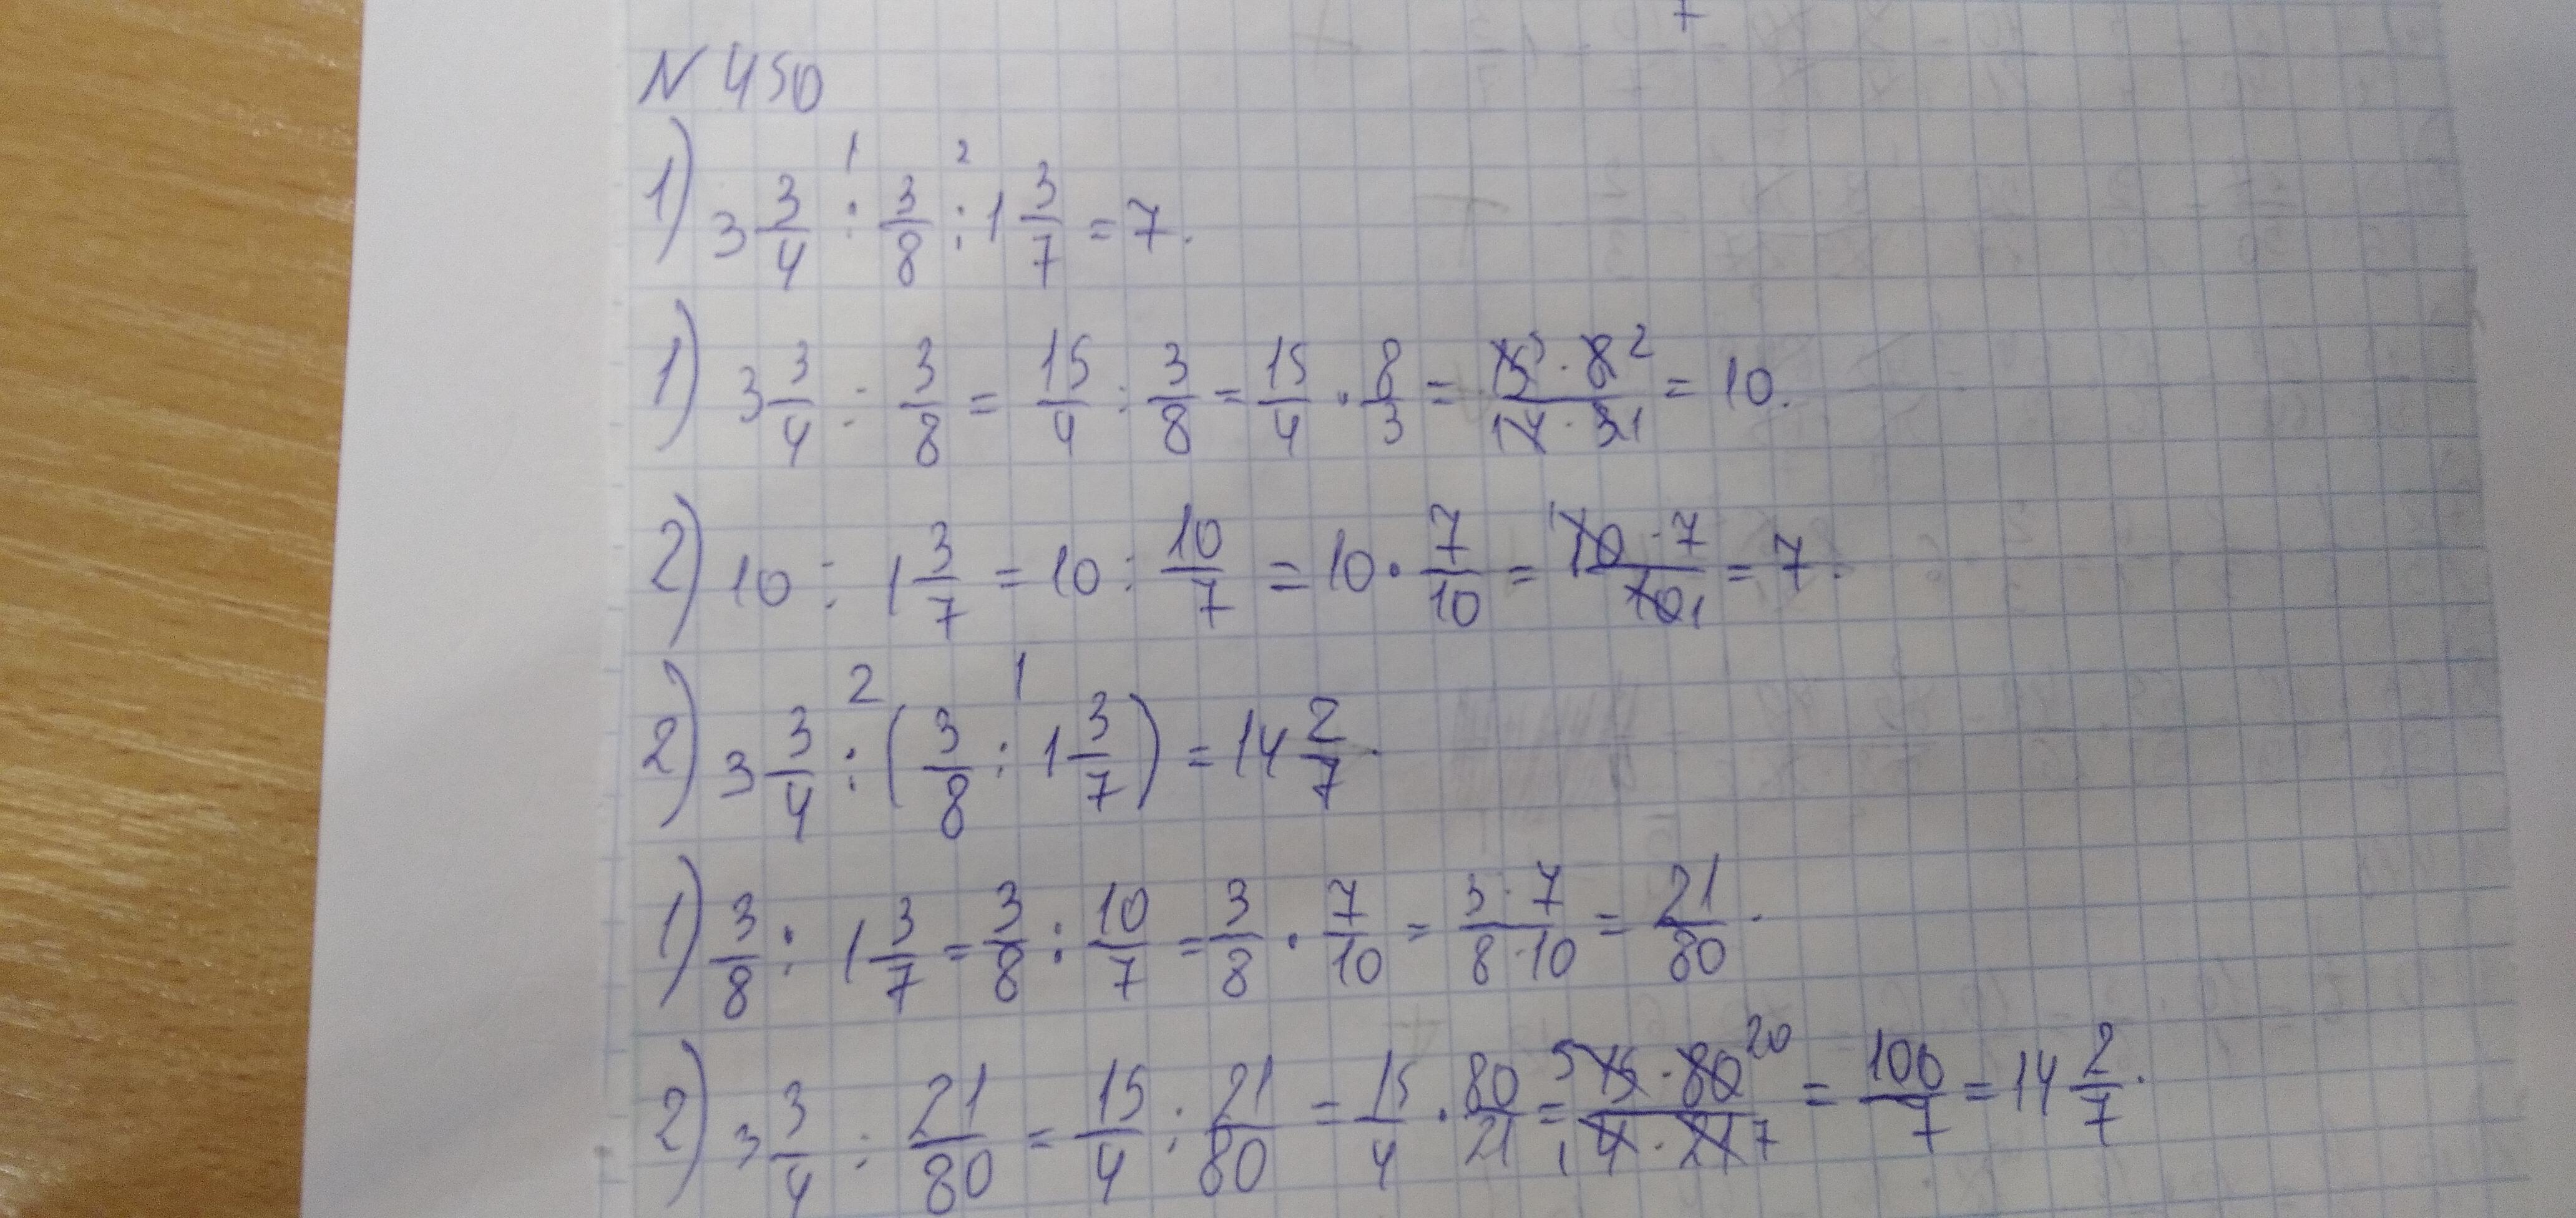 N 450
1) 3 3/4 : 3/8 : 1 3/7 = 7.
1) 3 3/4 : 3/8 = 15/4 : 3/8 = 15/4 · 8/3 = 15 · 8 / 4 · 3 = 10.
2) 10 : 1 3/7 = 10 : 10/7 = 10 · 7/10 = 10 · 7 / 10 = 7.
2) 3 3/4 : (3/8 : 1 3/7) = 14 2/7.
1) 3/8 : 1 3/7 = 3/8 : 10/7 = 3/8 · 7/10 = 3 · 7 / 8 · 10 = 21/80.
2) 3 3/4 : 21/80 = 15/4 : 21/80 = 15/4 · 80/21 = 15 · 80 / 4 · 21 = 100/7 = 14 2/7.